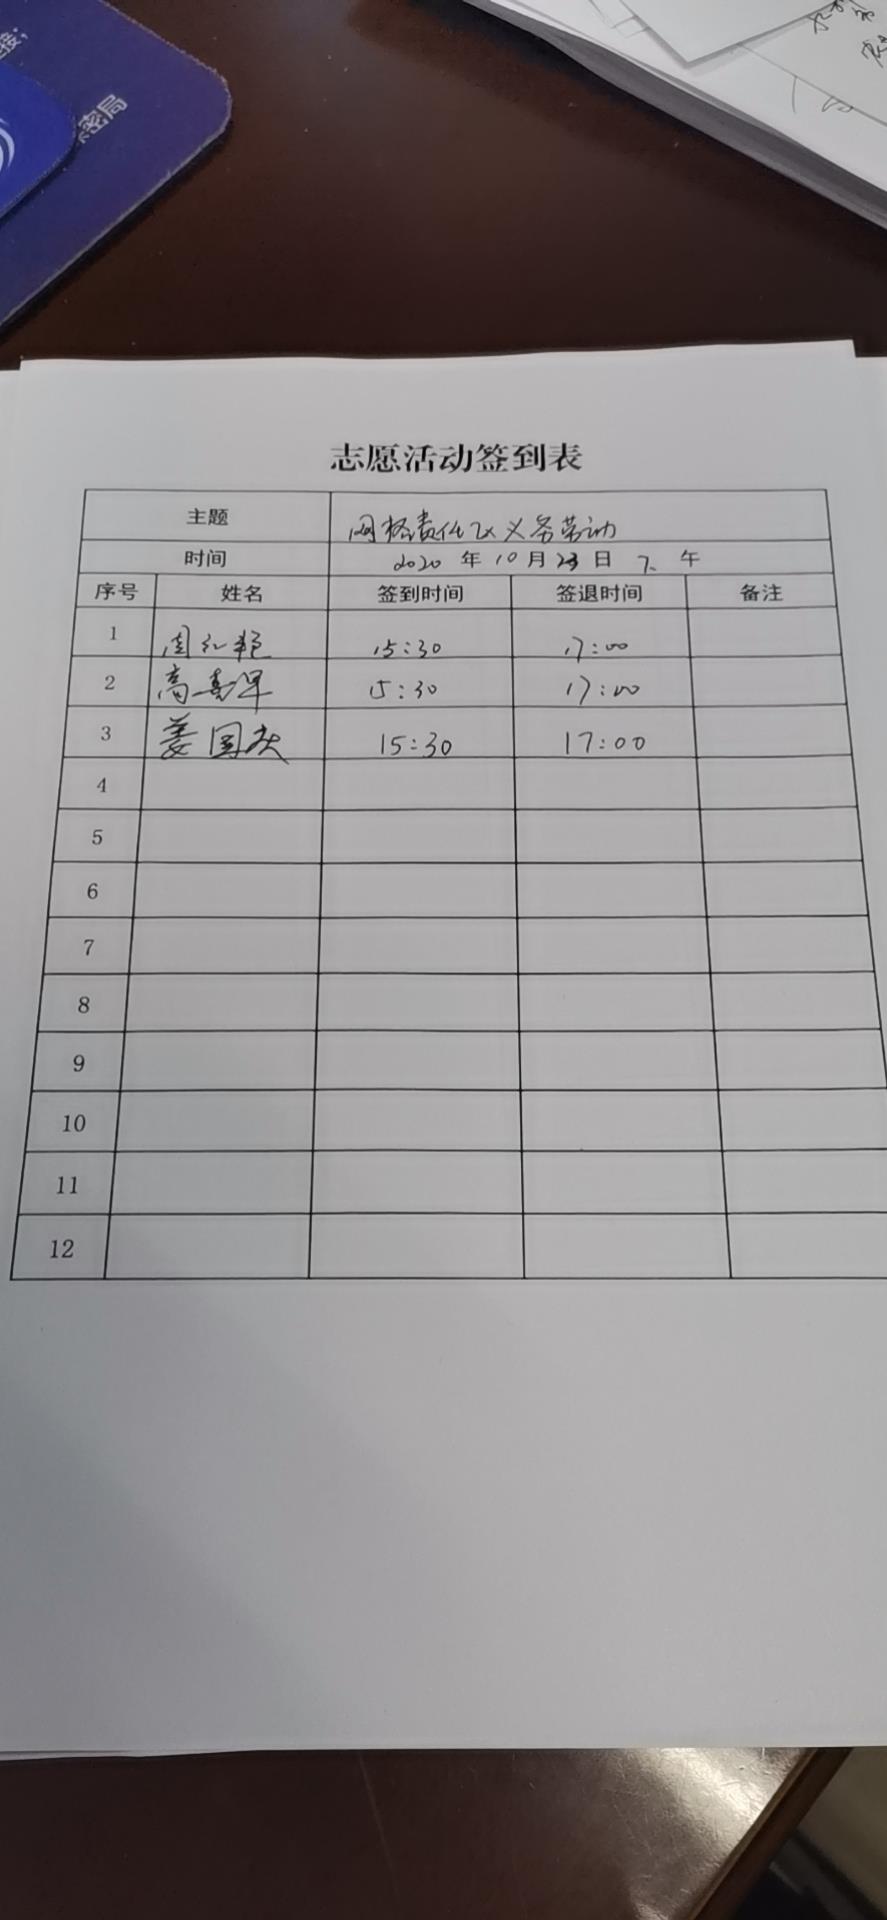 密局
志愿活动签到表
主题 网格责任区义务劳动
时间 2020 年 10 月 23 日 下 午
序号 姓名 签到时间 签退时间 备注
1 周红艳 15:30 17:00
2 高喜军 15:30 17:00
3 姜国庆 15:30 17:00
4
5
6
7
8
9
10
11
12